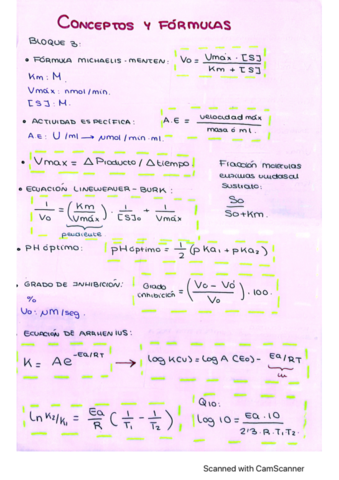 CONCEPTOS Y FÓRMULAS
BLOQUE 3:
• FÓRMULA MICHAELIS-MENTEN: Vo = Vmáx · [S] / Km + [S]
Km: M.
Vmáx: nmol/min.
[S]: M.
• ACTIVIDAD ESPECÍFICA: A.E = velocidad máx / masa ó ml.
A.E: U/ml → μmol/min·ml.
• Vmax = Δ Producto / Δ tiempo
Fracción moléculas
sustrato:
So / So + Km.
• ECUACIÓN LINEWEAVER-BURK:
1/Vo = (Km/Vmáx) · 1/[S]o + 1/Vmáx
pendiente
• PH óptimo: pH óptimo = 1/2 (pKa1 + pKa2)
• GRADO DE INHIBICIÓN: Grado inhibición = (Vo - Vo' / Vo) · 100.
%
Vo: μM/seg.
• ECUACIÓN DE ARRHENIUS:
K = Ae^-Ea/RT → log K(v) = log A (Eo) - Ea/RT
m
Ln K2/K1 = Ea/R (1/T1 - 1/T2)
Q10:
log 10 = Ea · 10 / 2'3 · R · T1 T2
Scanned with CamScanner